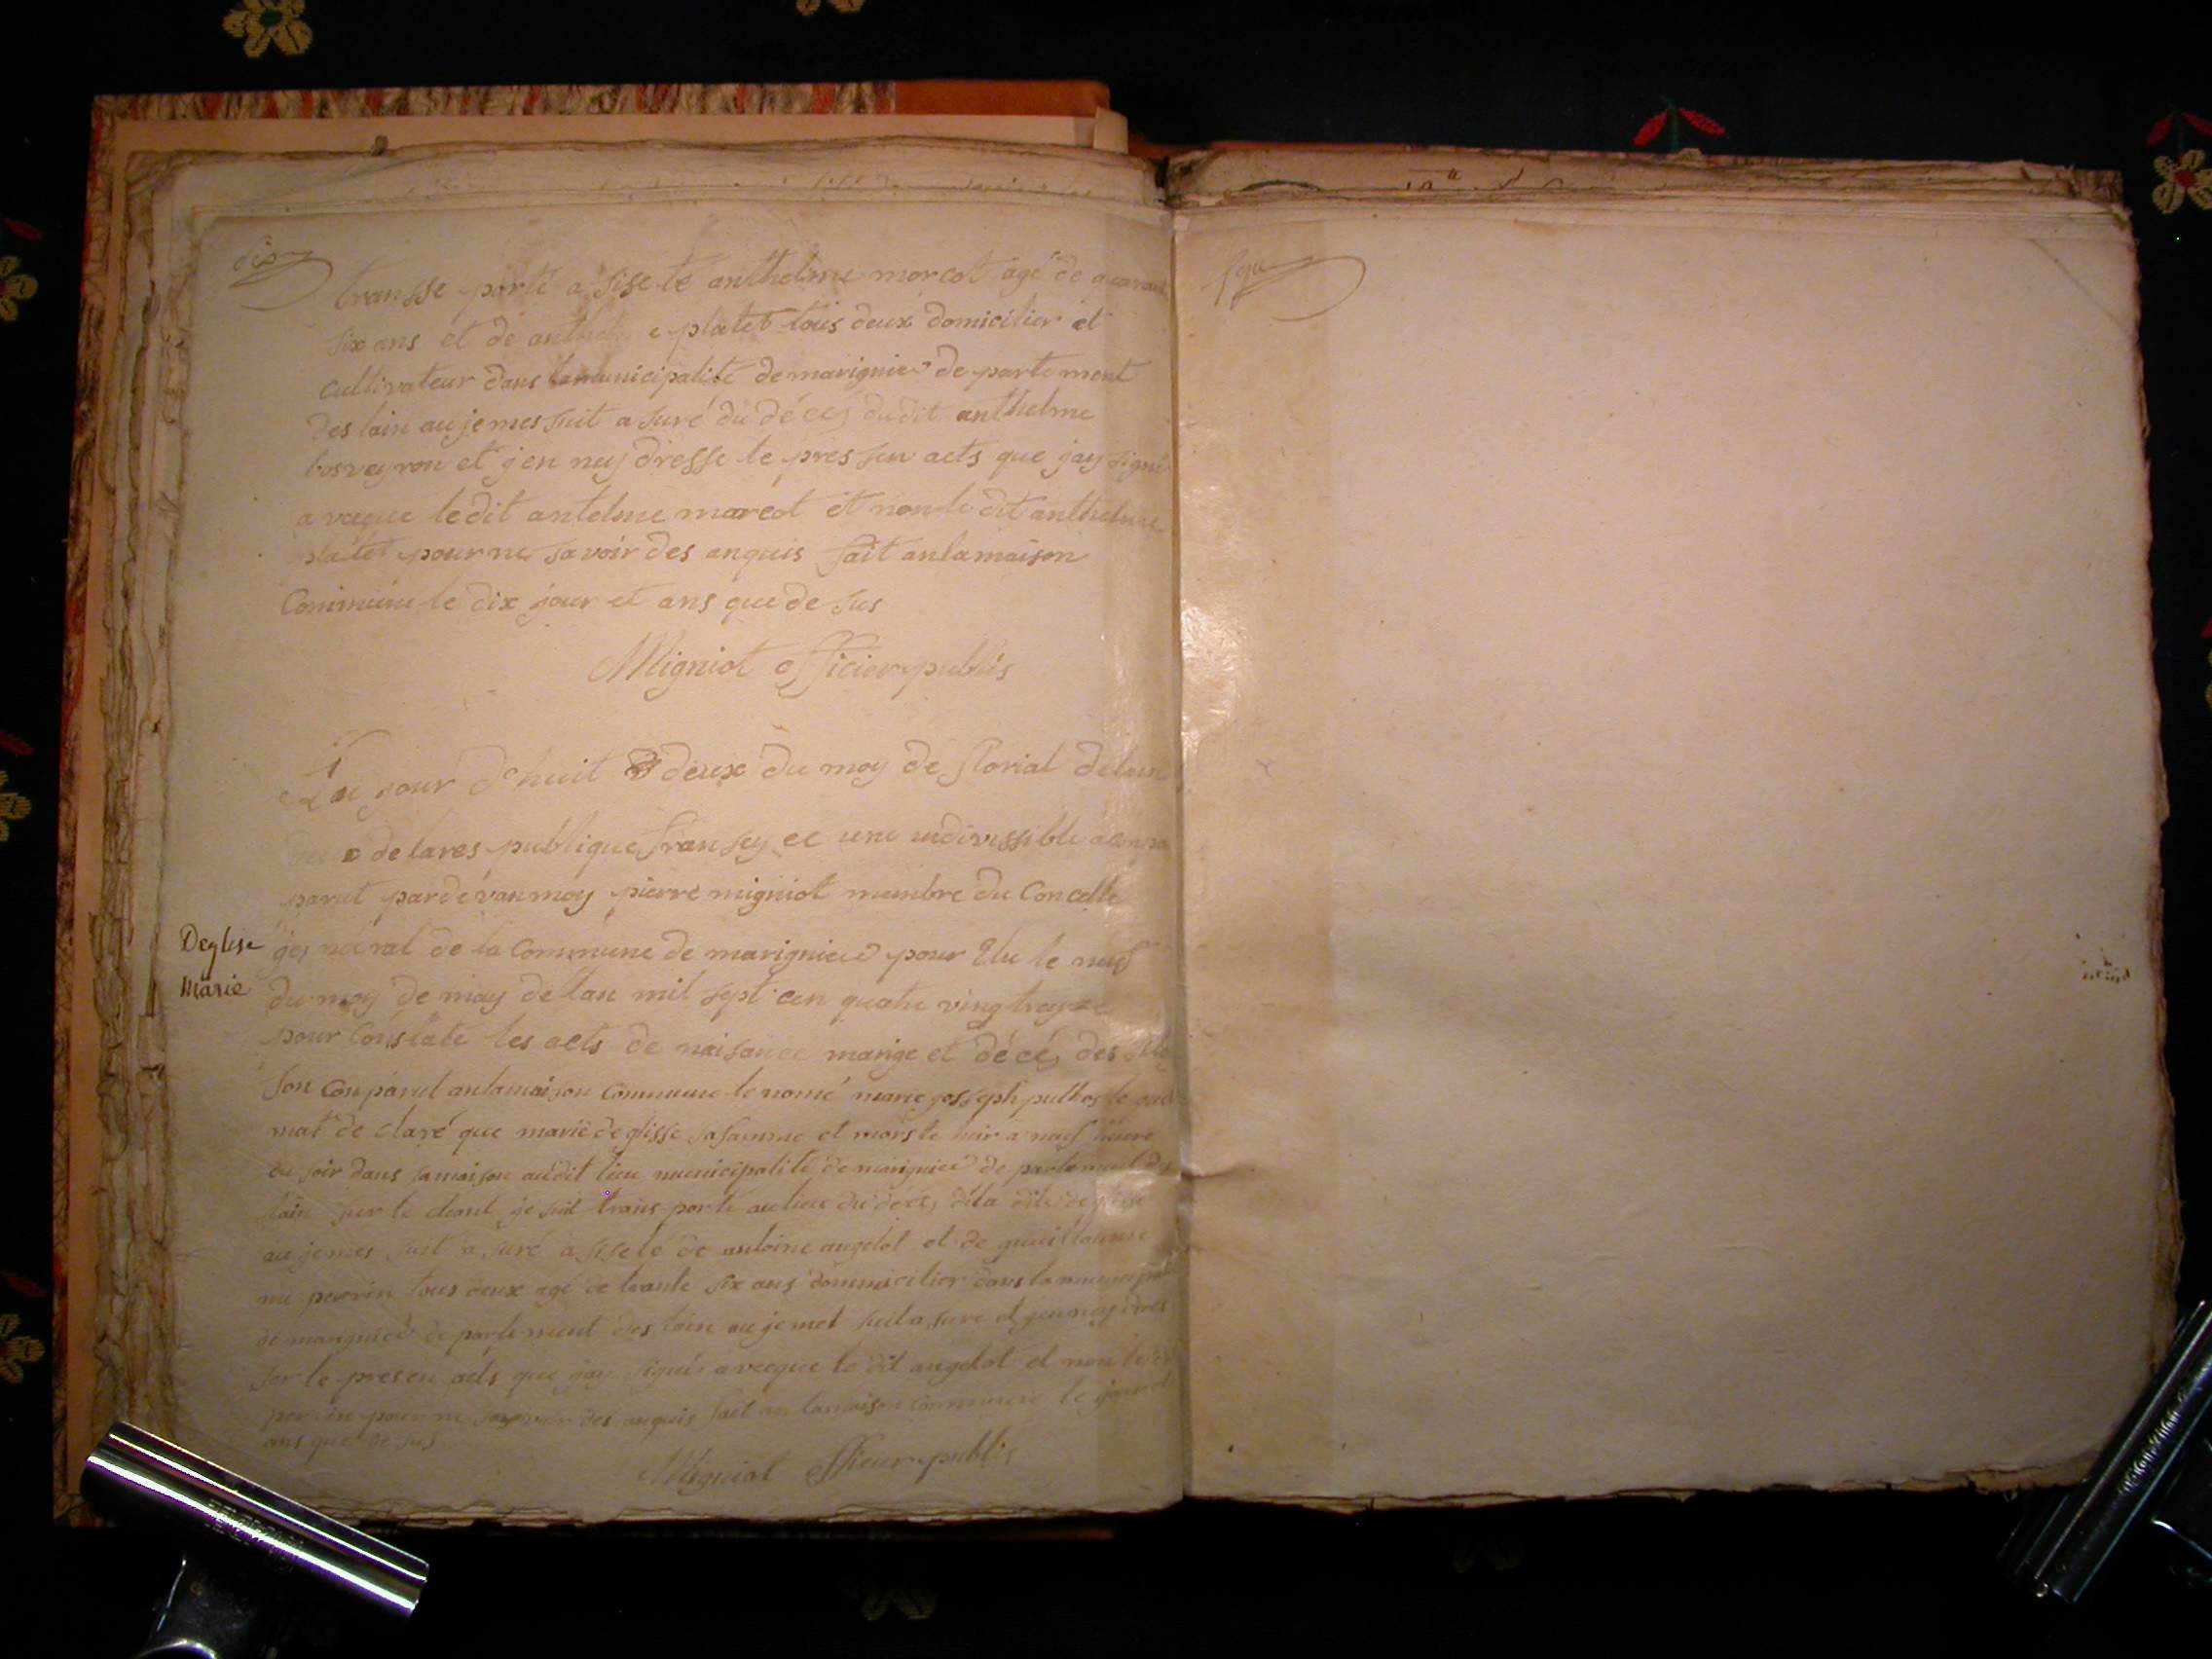 transse porté a sisste anthelme morcot agé de quarant
six ans et de anthelme platet tous deux domicilier et
cultivateur dans la municipalité de marignieu de parte ment
des lain au je mes suit a suré du décès du dit anthelme
bosveyron et j'en ney dresse le pres sen acts que jay signé
a vecque le dit antelme marcot et non le dit anthelme
platet pour ne savoir des anquis fait anlamaison
Commune le dix jour et ans que de sus
Migniot officier publis
au jour d'huit deux du moy de florial delan
deux de lares publique fransey ee une indivissible a Com
parut pardevan moy pierre migniot membre du Concelle
gey neéral de la Commune de marignieu pour Elu le neuf
du moy de may de lan mil sept cen quatre ving treyze
pour Constate les acts de naisance marige et décés des
Deglise
Marie
son Comparut anlamaison Commune le nomé marie josseph puthos
mat de claré que marie deglisse sa famme et morste hier a neuf heure
du soir dans samaison audit lieu municipalité de marignieu de partement des
lain sur le chant je suit trans porté au lieu du décés de la dite deglise
au je mes suit a suré a sisste de antoine angelot et de guillaume
perrin tous deux agé de trante six ans dommicilier dans la municipalité
de marignieu de partement des lain au je met suit a suré et jen ney dres
ser le presen acts que jay signé a vecque le dit angelot et non le dit
perrin pour ne sayvoir des anquis fait an lamaison commune le jour et
ans que de sus
Migniot officier publis